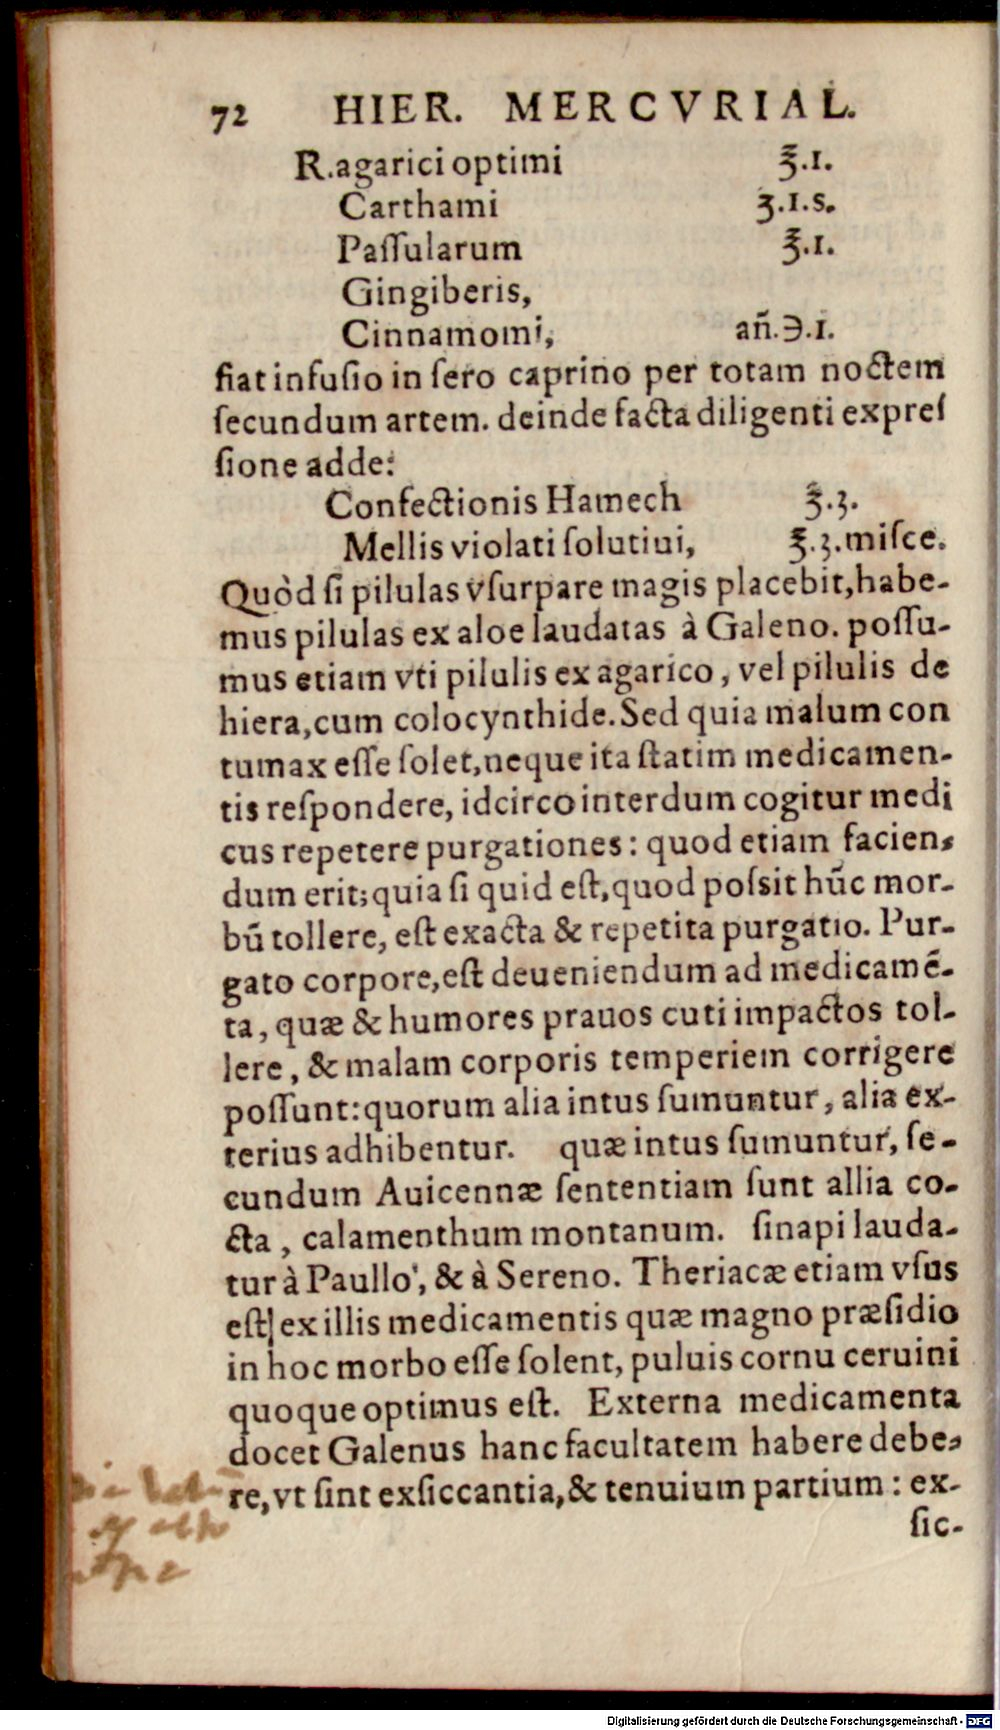 72 HIER. MERCVRIAL.
R.agarici optimi ℥.1.
Carthami ʒ.1.s.
Paſſularum ℥.1.
Gingiberis,
Cinnamomi, añ.℈.1.
fiat infuſio in ſero caprino per totam noctem
ſecundum artem. deinde facta diligenti expreſ
ſione adde:
Confectionis Hamech ℥.3.
Mellis violati ſolutiui, ℥.3.miſce.
Quòd ſi pilulas vſurpare magis placebit,habe-
mus pilulas ex aloe laudatas à Galeno. poſſu-
mus etiam vti pilulis ex agarico, vel pilulis de
hiera,cum colocynthide.Sed quia malum con
tumax eſſe ſolet,neque ita ſtatim medicamen-
tis reſpondere, idcirco interdum cogitur medi
cus repetere purgationes: quod etiam facien-
dum erit;quia ſi quid eſt,quod poſsit hūc mor-
bū tollere, eſt exacta & repetita purgatio. Pur-
gato corpore,eſt deueniendum ad medicamē-
ta, quæ & humores prauos cuti impactos tol-
lere, & malam corporis temperiem corrigere
poſſunt:quorum alia intus ſumuntur, alia ex-
terius adhibentur. quæ intus ſumuntur, ſe-
cundum Auicennæ ſententiam ſunt allia co-
cta, calamenthum montanum. ſinapi lauda-
tur à Paullo, & à Sereno. Theriacæ etiam vſus
eſt ex illis medicamentis quæ magno præſidio
in hoc morbo eſſe ſolent, puluis cornu ceruini
quoque optimus eſt. Externa medicamenta
docet Galenus hanc facultatem habere debe-
re,vt ſint exſiccantia,& tenuium partium: ex-
ſic-
Digitalisierung gefördert durch die Deutsche Forschungsgemeinschaft - DFG